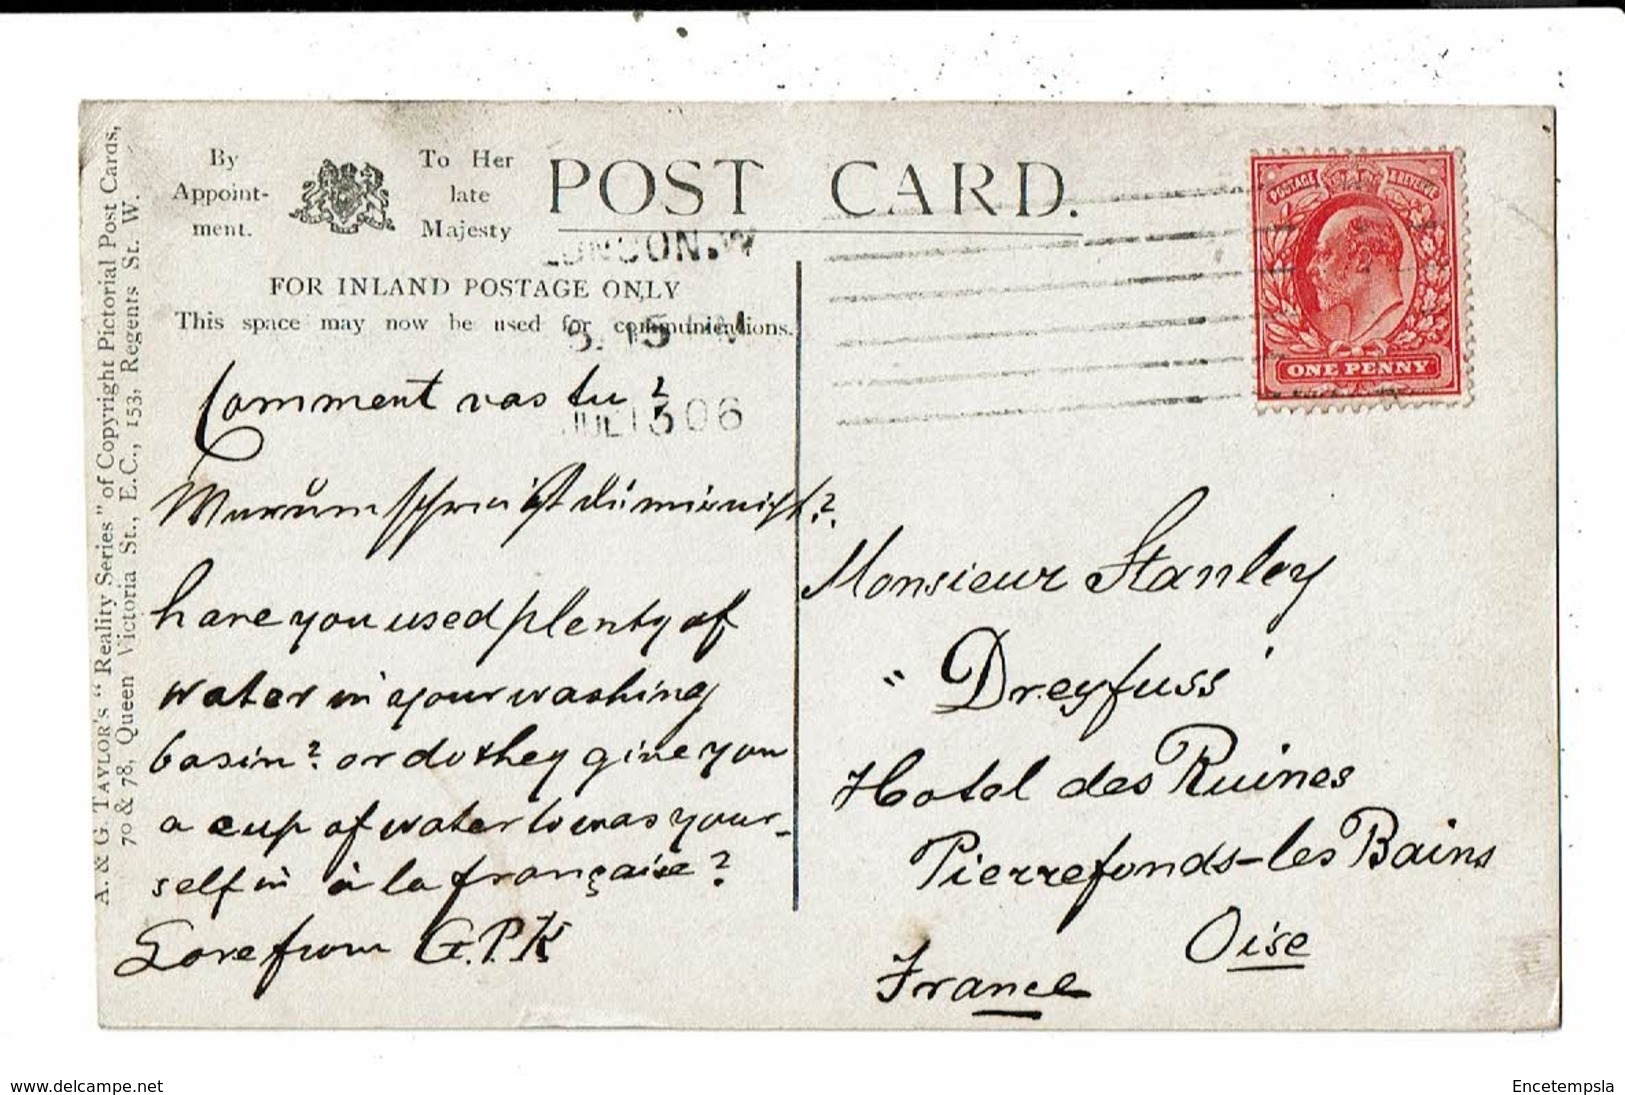 By
Appoint-
ment.
To Her
late
Majesty
POST CARD.
LONDON.W
FOR INLAND POSTAGE ONLY
This space may now be used for communications.
JUL 13 06
POSTAGE & REVENUE
ONE PENNY
A. & G. TAYLOR'S "Reality Series" of Copyright Pictorial Post Cards,
70 & 78, Queen Victoria St., E.C., 153, Regents St. W.
Comment vas tu?
Warum schreibst du mir nicht?
have you used plenty of
water in your washing
basin? or do they give you
a cup of water to was your-
self in à la française?
Love from G.P.K
Monsieur Stanley
"Dreyfuss"
Hotel des Ruines
Pierrefonds-les Bains
Oise
France
www.delcampe.net
Encetempsla